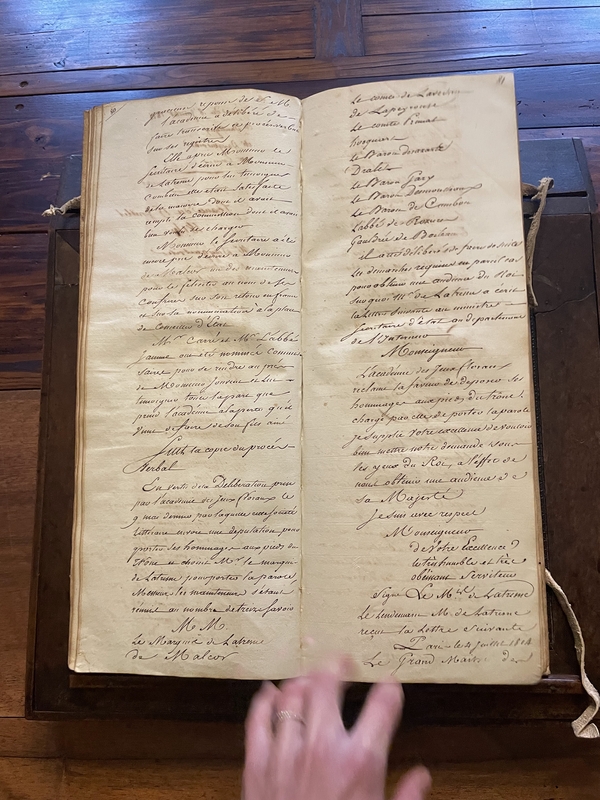 80
gracieuse réponse de S. M
l'academie a délibéré de
faire transcrire ce procèsverbal
sur ses registres
Elle a prié Monsieur le
secretaire d'écrire à Monsieur
de Latresne pour lui temoigner
combien elle était satisfaite
de la maniere dont il avait
rempli la commission dont il avait
bien voulu se charger
Monsieur le secretaire a été
encore prié d'écrire à Monsieur
de Malcor un des mainteneurs
pour le feliciter au nom de ses
confreres sur son retour en france
et sur la nomination à la place
de Conseiller d'Etat
Mr. Carré et Mr. L'abbé
Jamme ont été nommés commis-
saires pour se rendre au près
de Monsieur Jouvent et lui
temoigner toute la part que
prend l'academie à la perte qu'il
vient de faire de son fils ainé
Suit la copie du procès-
Verbal
En vertu de la Deliberation prise
par l'academie des Jeux floraux le
9 mai dernier par laquelle cette société
litteraire envoie une députation pour
porter ses hommages aux pieds du
Trône et choisit Mr. le marquis
de Latresne pour porter la parole
Messieurs les mainteneurs s'étant
réunis au nombre de treize savoir
M. M.
Le Marquis de Latresne
de Malcor
81
Le comte de
de Lapeyrouse
Le comte Primat
hocquart
Le Baron desazars
Dralet
Le Baron Gary
Le Baron Dumouroux
Le Baron de Cambon
L'abbé de Rozieres
Gaudrée de Boileau
il a été délibéré de faire de suite
les demarches requises en pareil cas
pour obtenir une audience du Roi
sur quoi Mr. de Latresne a écrit
la lettre suivante au ministre
secretaire d'état au departement
de l'Interieur
Monseigneur
L'academie des Jeux floraux
reclame la faveur de deposer ses
hommages aux pieds du trône et
chargé par elle de porter la parole
je supplie Votre excellence de vouloir
bien mettre notre demande sous
les yeux du Roi, à l'effet de
nous obtenir une audience de
sa Majesté
je suis avec respect
Monseigneur
de Votre Excellence
le très humble et très
obéissant serviteur
Signé Le Mis. de Latresne
Le lendemain M. de Latresne
reçut la Lettre suivante
Paris le 4 juillet 1814
Le Grand Maitre des